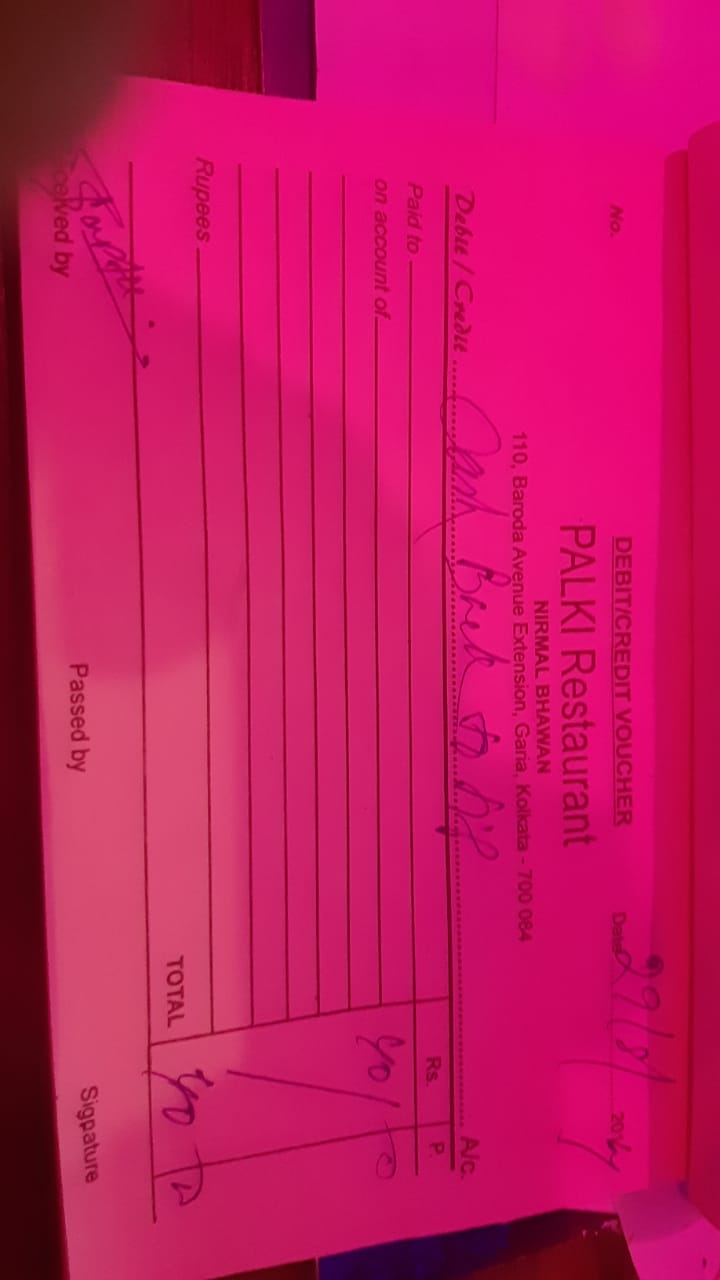 No.
DEBIT/CREDIT VOUCHER
PALKI Restaurant
NIRMAL BHAWAN
110, Baroda Avenue Extension, Garia, Kolkata - 700 084
Date 29/
Debit / Credit Cash Back to A/c.
Paid to
Rs. P.
on account of
Rupees
TOTAL
Received by Passed by Signature